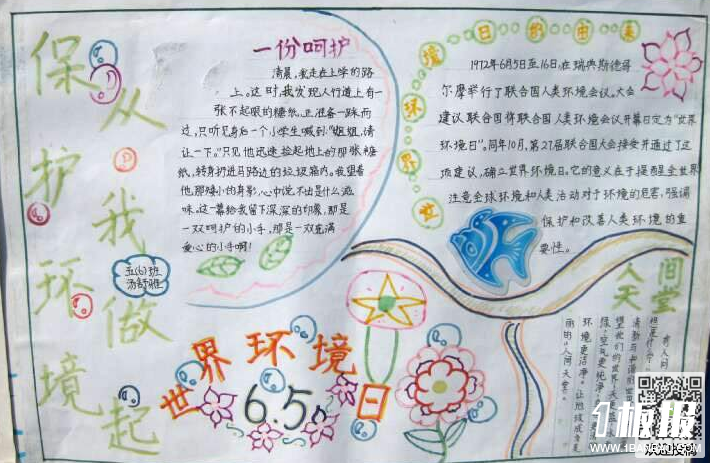 保护环境
从我做起
五(6)班
一份呵护
清晨,我走在上学的路
上。这时,我发现人行道上有一
张不起眼的糖纸。正准备一踩而
过,只听见身后一个小学生喊到"姐姐,请
让一下。"只见他迅速捡起地上的那张糖
纸,转身扔进马路边的垃圾箱内。我望着
他,那矮小的身影,心中说不出是什么滋
味。这一幕给我留下深深的印象,那是
一双呵护的小手,那是一双充满
爱心的小手啊!
世界环境日的由来
1972年6月5日至16日,在瑞典斯德哥
尔摩举行了联合国人类环境会议。大会
建议联合国将联合国人类环境会议开幕日定为"世界
环境日"。同年10月,第27届联合国大会接受并通过了这
项建议,确立世界环境日。它的意义在于提醒全世界
注意全球环境和人类活动对于环境的危害,强调
保护和改善人类环境的重
要性。
世界环境日
6.5
人间天堂
环境更洁净。让地球成为
丽的"人间天堂"。
板报
欢迎投稿